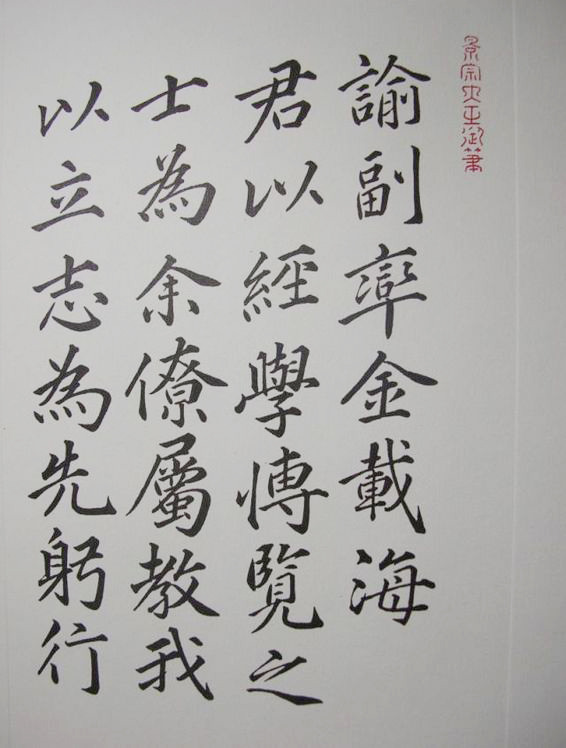 景宗大王御筆
諭副率金載海
君以經學博覽之
士為余僚屬教我
以立志為先躬行